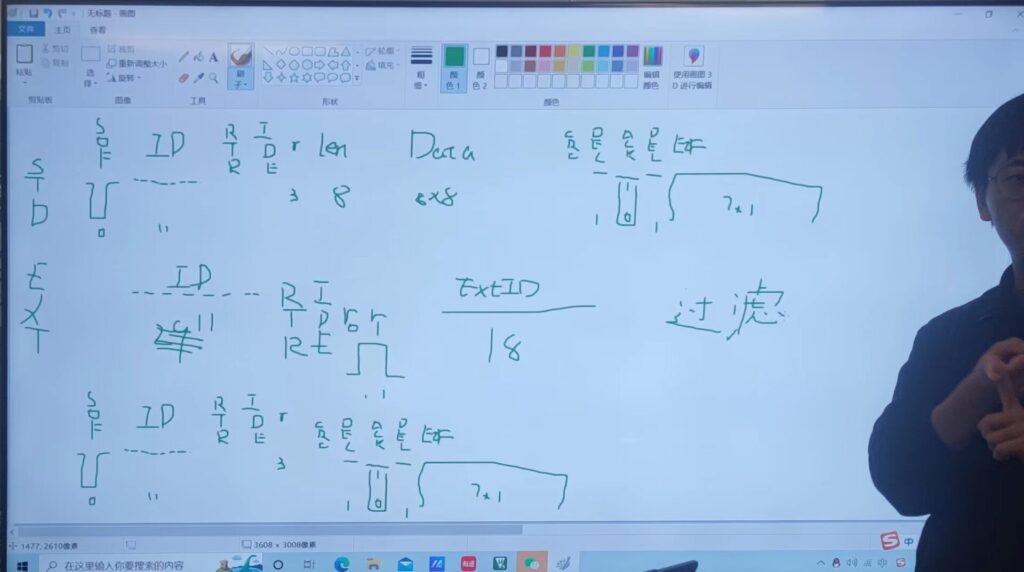 无标题 - 画图
文件 主页 查看
粘贴 剪切 复制 选择 裁剪 重新调整大小 旋转 刷子 轮廓 填充 粗细 颜色 1 颜色 2 编辑颜色 使用画图 3D 进行编辑
剪贴板 图像 工具 形状 颜色
SOF ID RTR IDE r len Data CRC DEL ACK DEL EOF
STD
3 8 8x8
0 11 1 1 0 1 7x1
EXT
ID
11
RTR IDE
ExtID
18
过滤
SOF ID RTR IDE r CRC DEL ACK DEL EOF
3
0 11 1 1 0 1 7x1
1477, 2610像素 3608 × 3008像素
在这里输入你要搜索的内容
S 中